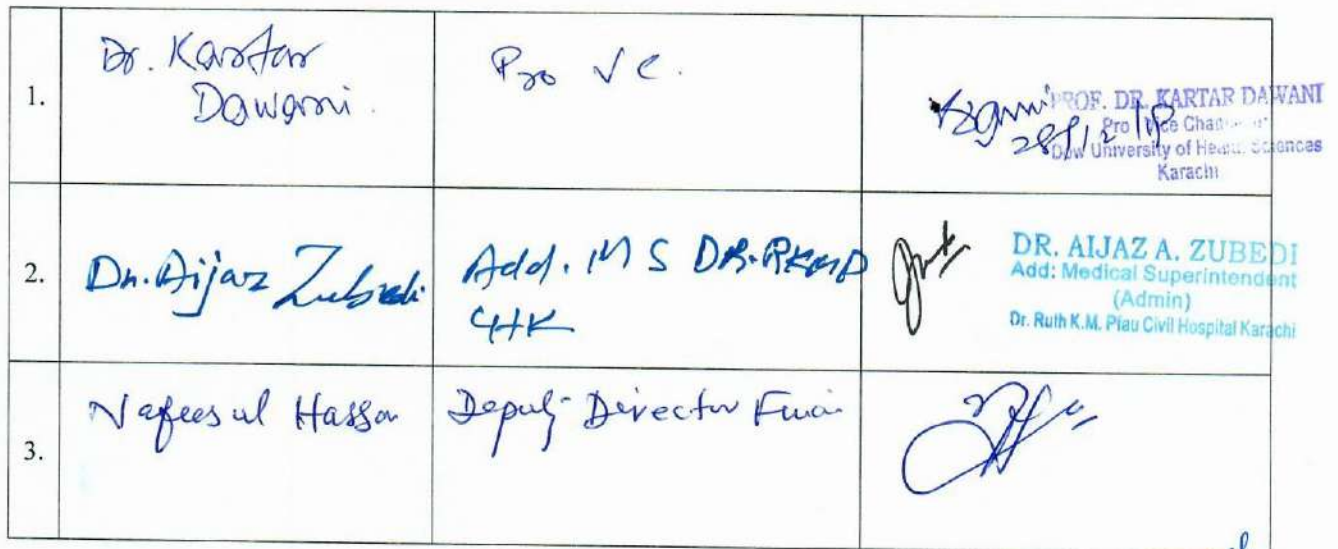 1.
Dr. Kartar
Dawani.
Pro VC.
28/12/18
PROF. DR. KARTAR DAWANI
Pro Vice
Dow University of Health Sciences
Karachi
2.
Dr. Aijaz Zubedi
Add. MS DR. RKMP
CHK
DR. AIJAZ A. ZUBEDI
Add: Medical Superintendent
(Admin)
Dr. Ruth K.M. Pfau Civil Hospital Karachi
3.
Nafees ul Hassan
Deputy Director